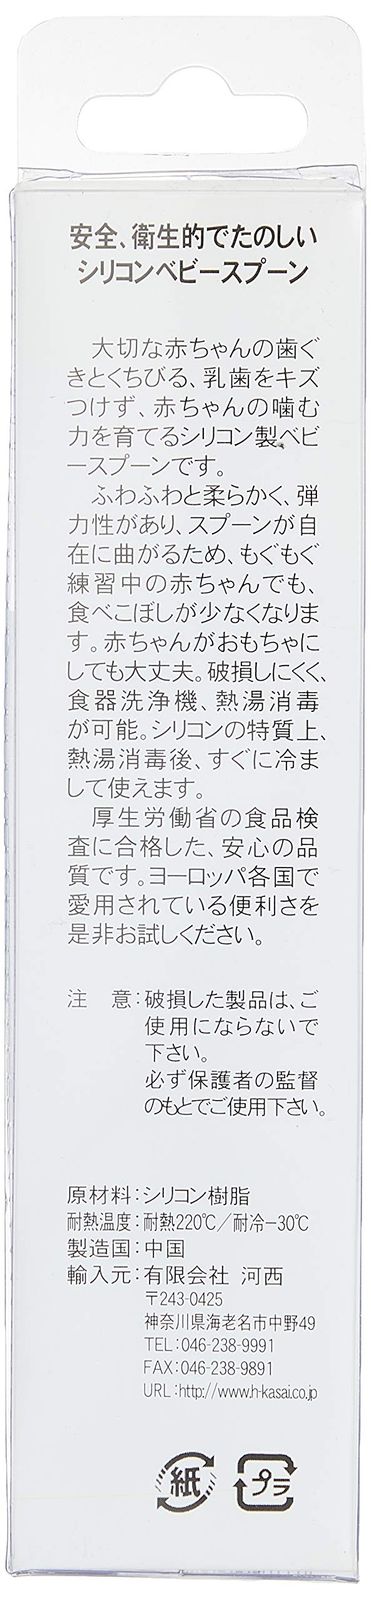 安全、衛生的でたのしい
シリコンベビースプーン
大切な赤ちゃんの歯ぐ
きとくちびる、乳歯をキズ
つけず、赤ちゃんの噛む
力を育てるシリコン製ベビ
ースプーンです。
ふわふわと柔らかく、弾
力性があり、スプーンが自
在に曲がるため、もぐもぐ
練習中の赤ちゃんでも、
食べこぼしが少なくなりま
す。赤ちゃんがおもちゃに
しても大丈夫。破損しにくく、
食器洗浄機、熱湯消毒
が可能。シリコンの特質上、
熱湯消毒後、すぐに冷ま
して使えます。
厚生労働省の食品検
査に合格した、安心の品
質です。ヨーロッパ各国で
愛用されている便利さを
是非お試しください。
注　意：破損した製品は、ご
使用にならないで
下さい。
必ず保護者の監督
のもとでご使用下さい。
原材料：シリコン樹脂
耐熱温度：耐熱220℃／耐冷−30℃
製造国：中国
輸入元：有限会社 河西
〒243-0425
神奈川県海老名市中野49
TEL：046-238-9991
FAX：046-238-9891
URL：http://www.h-kasai.co.jp
紙 プラ